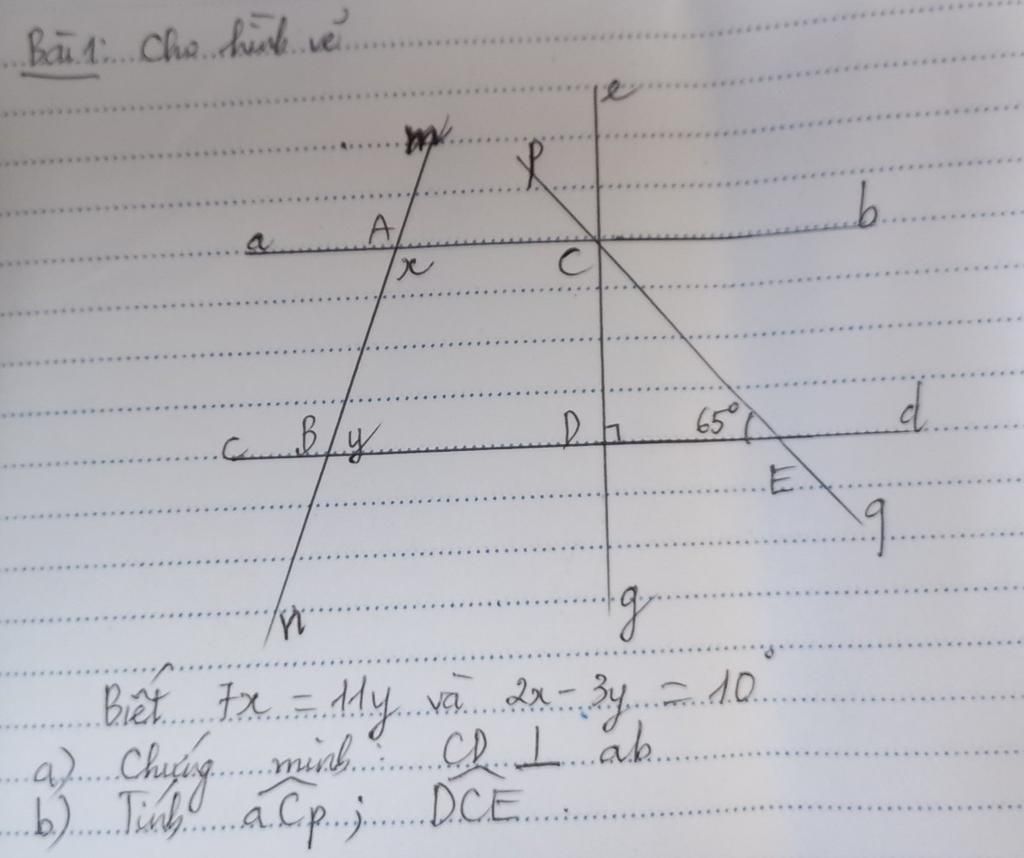 Bài 1: Cho hình vẽ
e
m
p
a A b
x C
c B y D 65° d
E
q
n g
Biết 7x = 11y và 2x - 3y = 10°
a) Chứng minh: CD ⊥ ab
b) Tính aCp; DCE.